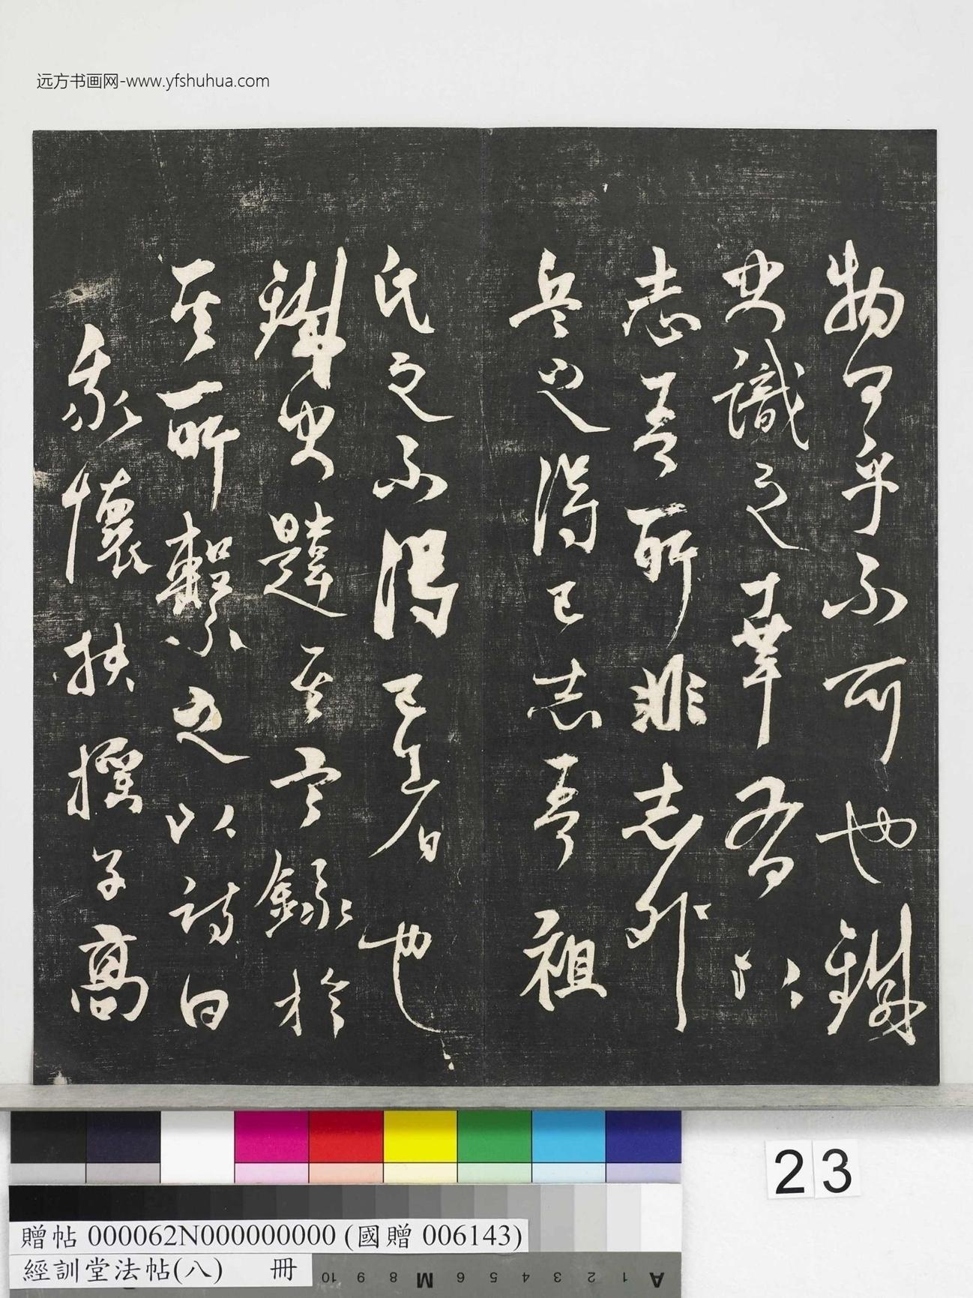 远方书画网-www.yfshuhua.com
物可乎不可也鐵
史識之吾以
志吾所非志外
之得已志吾祖
氏之不得已者也
鐵史韙其言錄於
其所繫之以詩曰
我懷扶搖子高
23
贈帖 000062N000000000 (國贈 006143)
經訓堂法帖(八) 冊
10 9 8 M 6 5 4 3 2 1 A